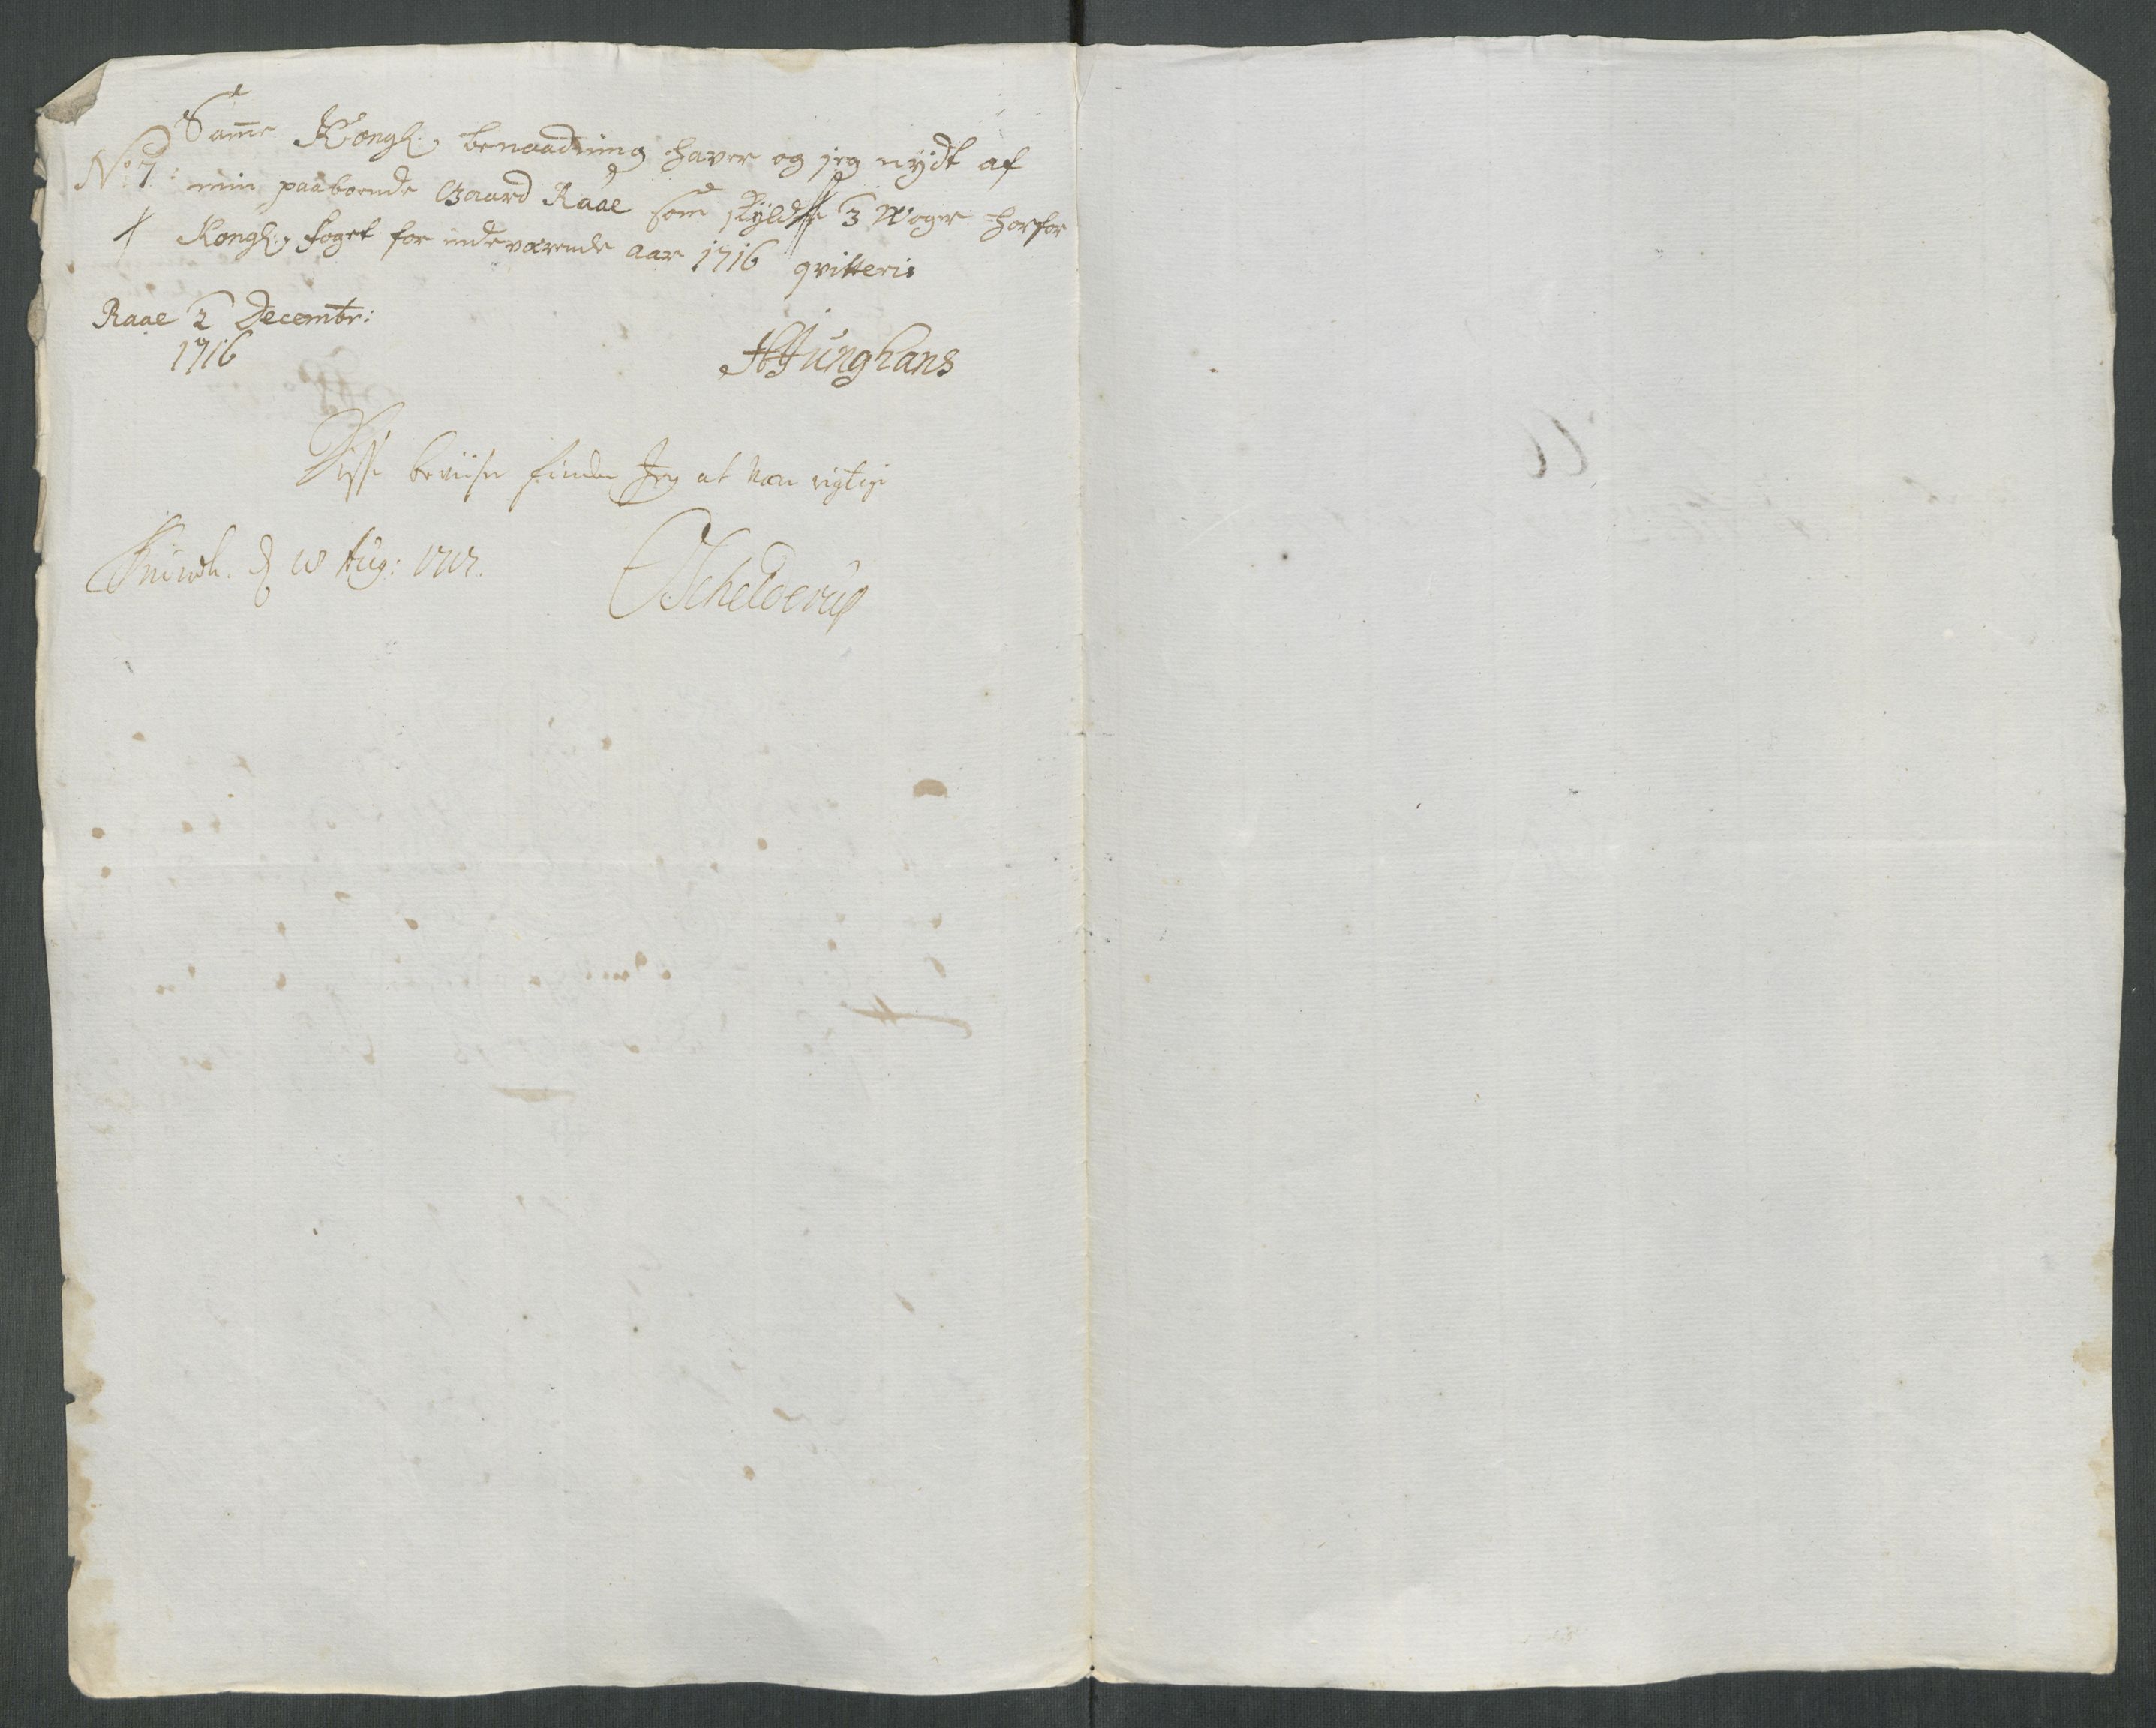 Samme Kongl: benaadning haver og jeg nÿdt af
No 7: min paaboende Gaard Raae som skÿlder 3 Woger, horfor
Kongl: foget for indeværende aar 1716 qvitteris
Raae 2 Decembr:
1716
HJunghans
Disse beviiser finder Jeg at være rigtige
d 18 Aug: 1717.
Schelderup